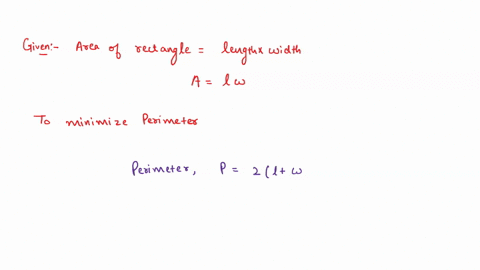 Given:- Area of rectangle = length x width
A = l w
To minimize Perimeter
Perimeter, P = 2 ( l + w